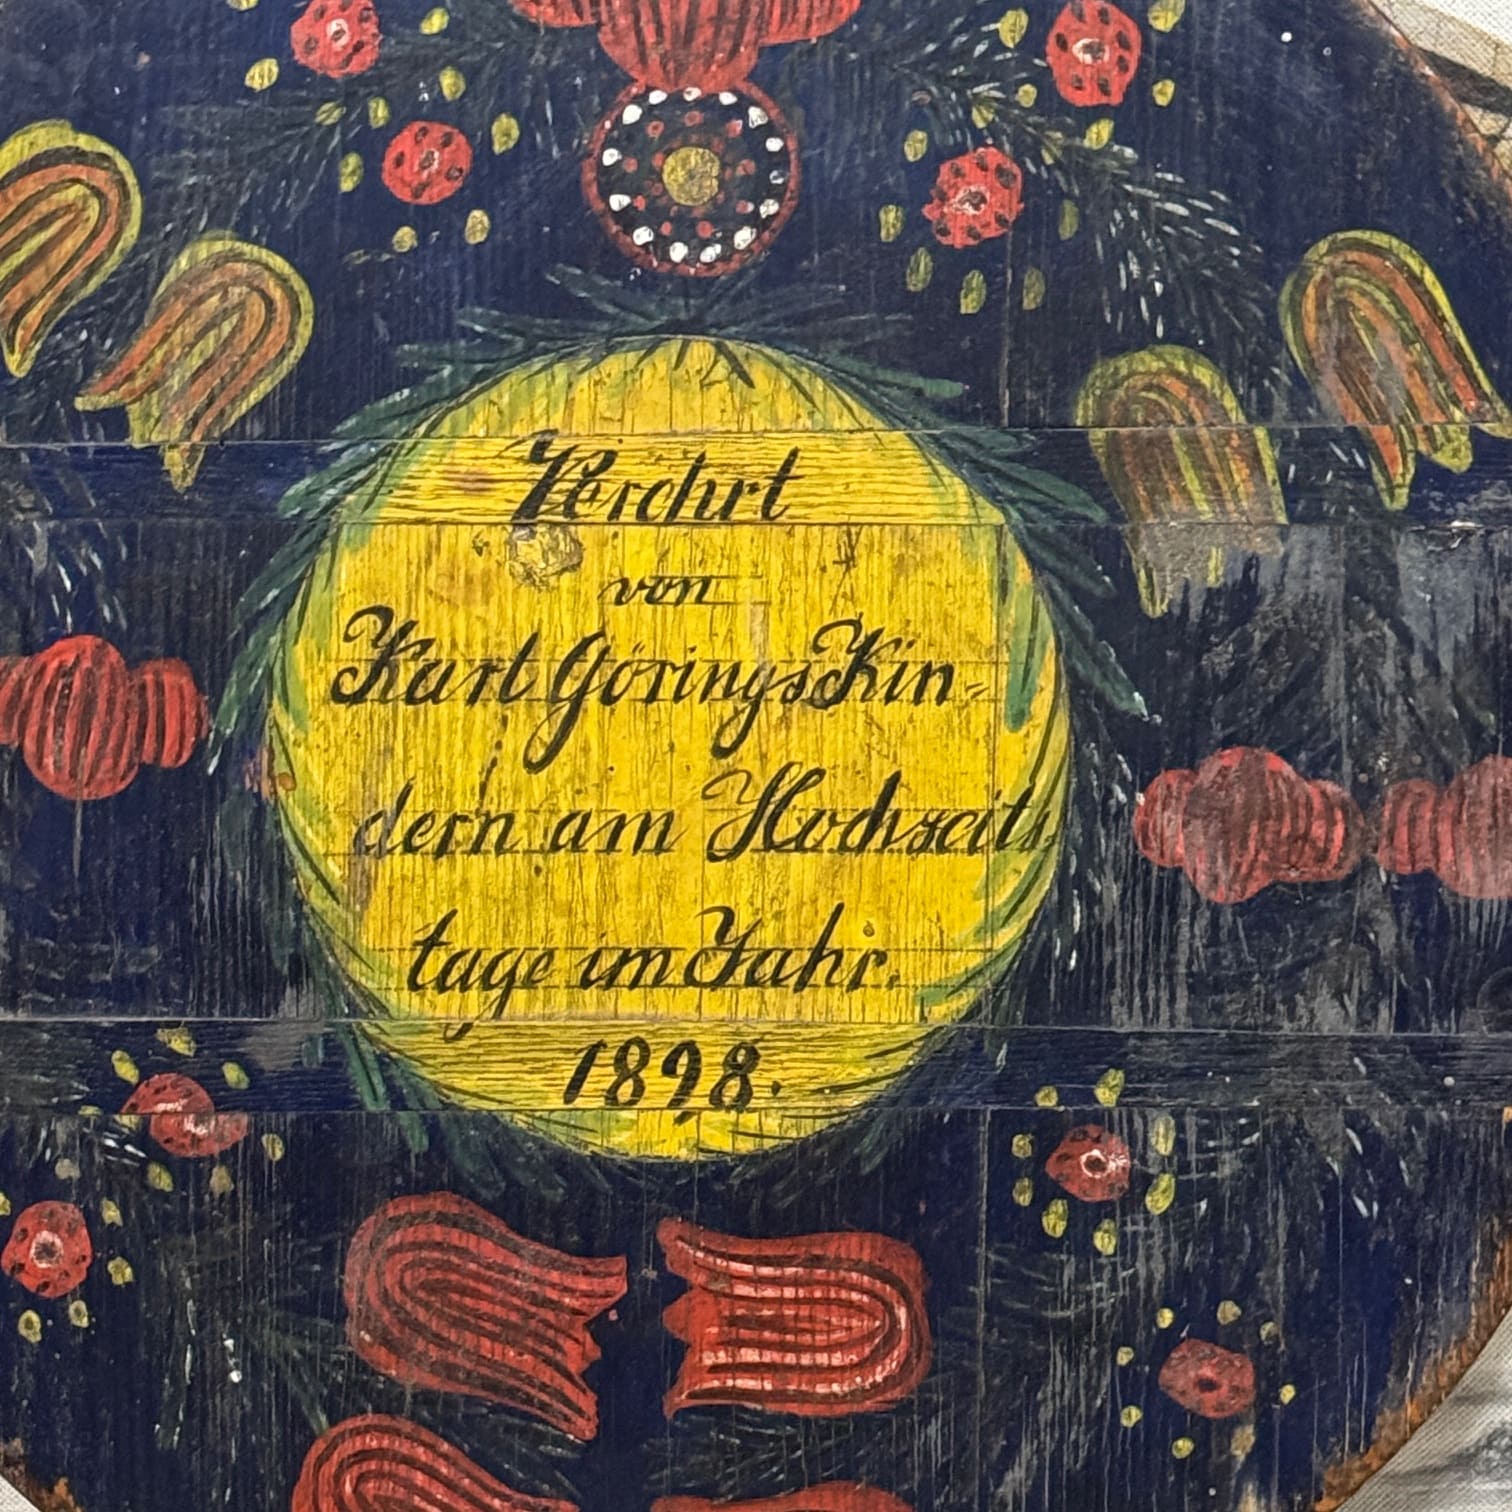 Verehrt
von
Karl Görings Kin=
dern am Hochzeits
tage im Jahr.
1898.